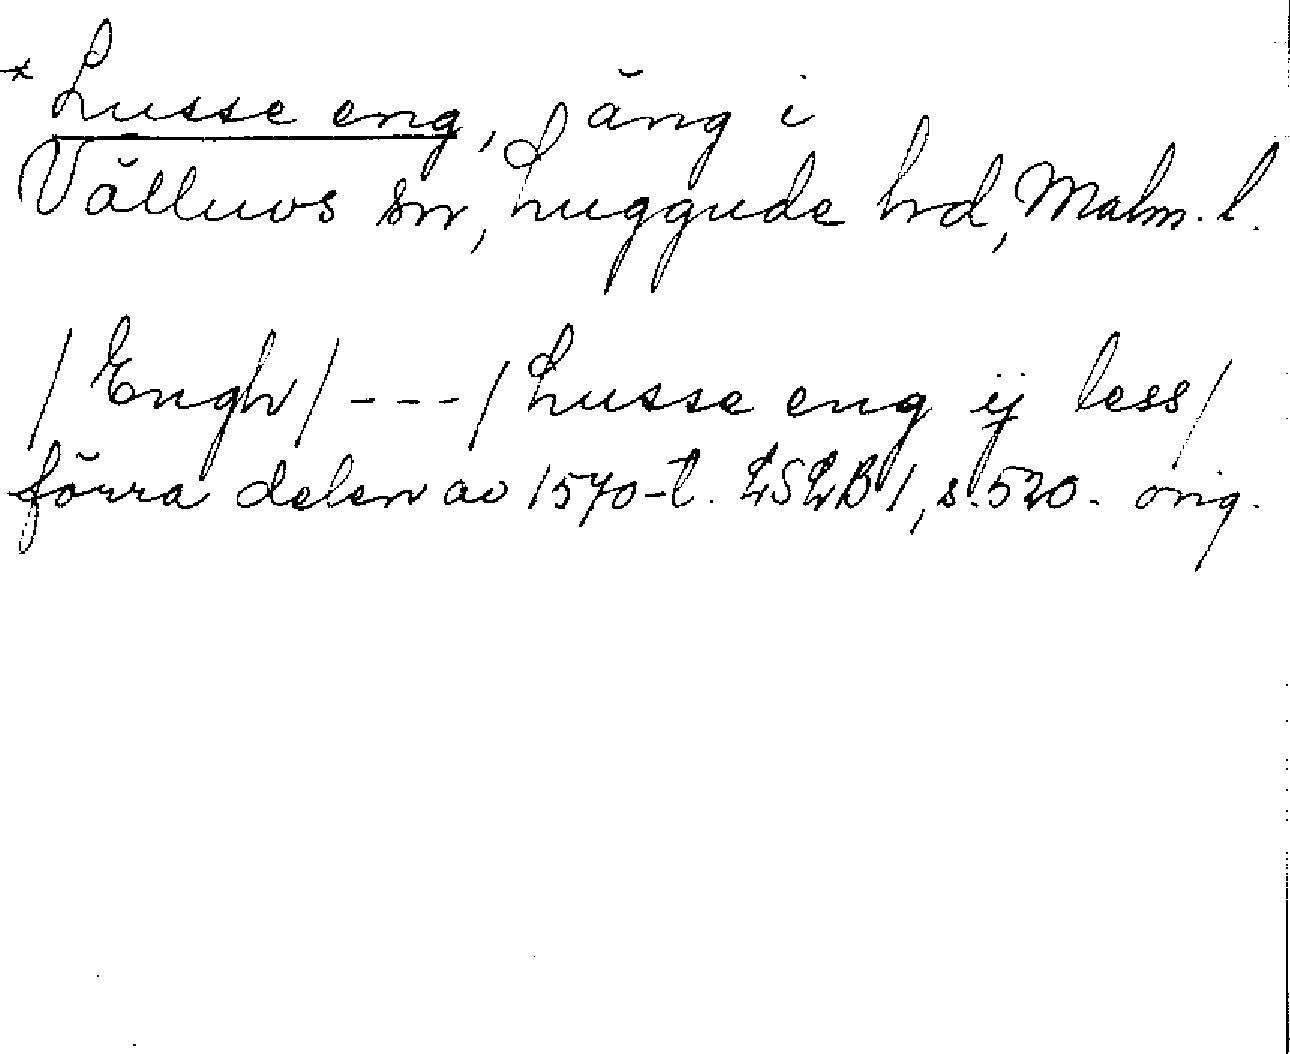 * Lusse eng, äng i
Välluvs sn, Luggude hrd, Malm. l.
/Engh/ --- /Lusse eng ij less/
förra delen av 1570-t. LSLB 1, s. 520. orig.